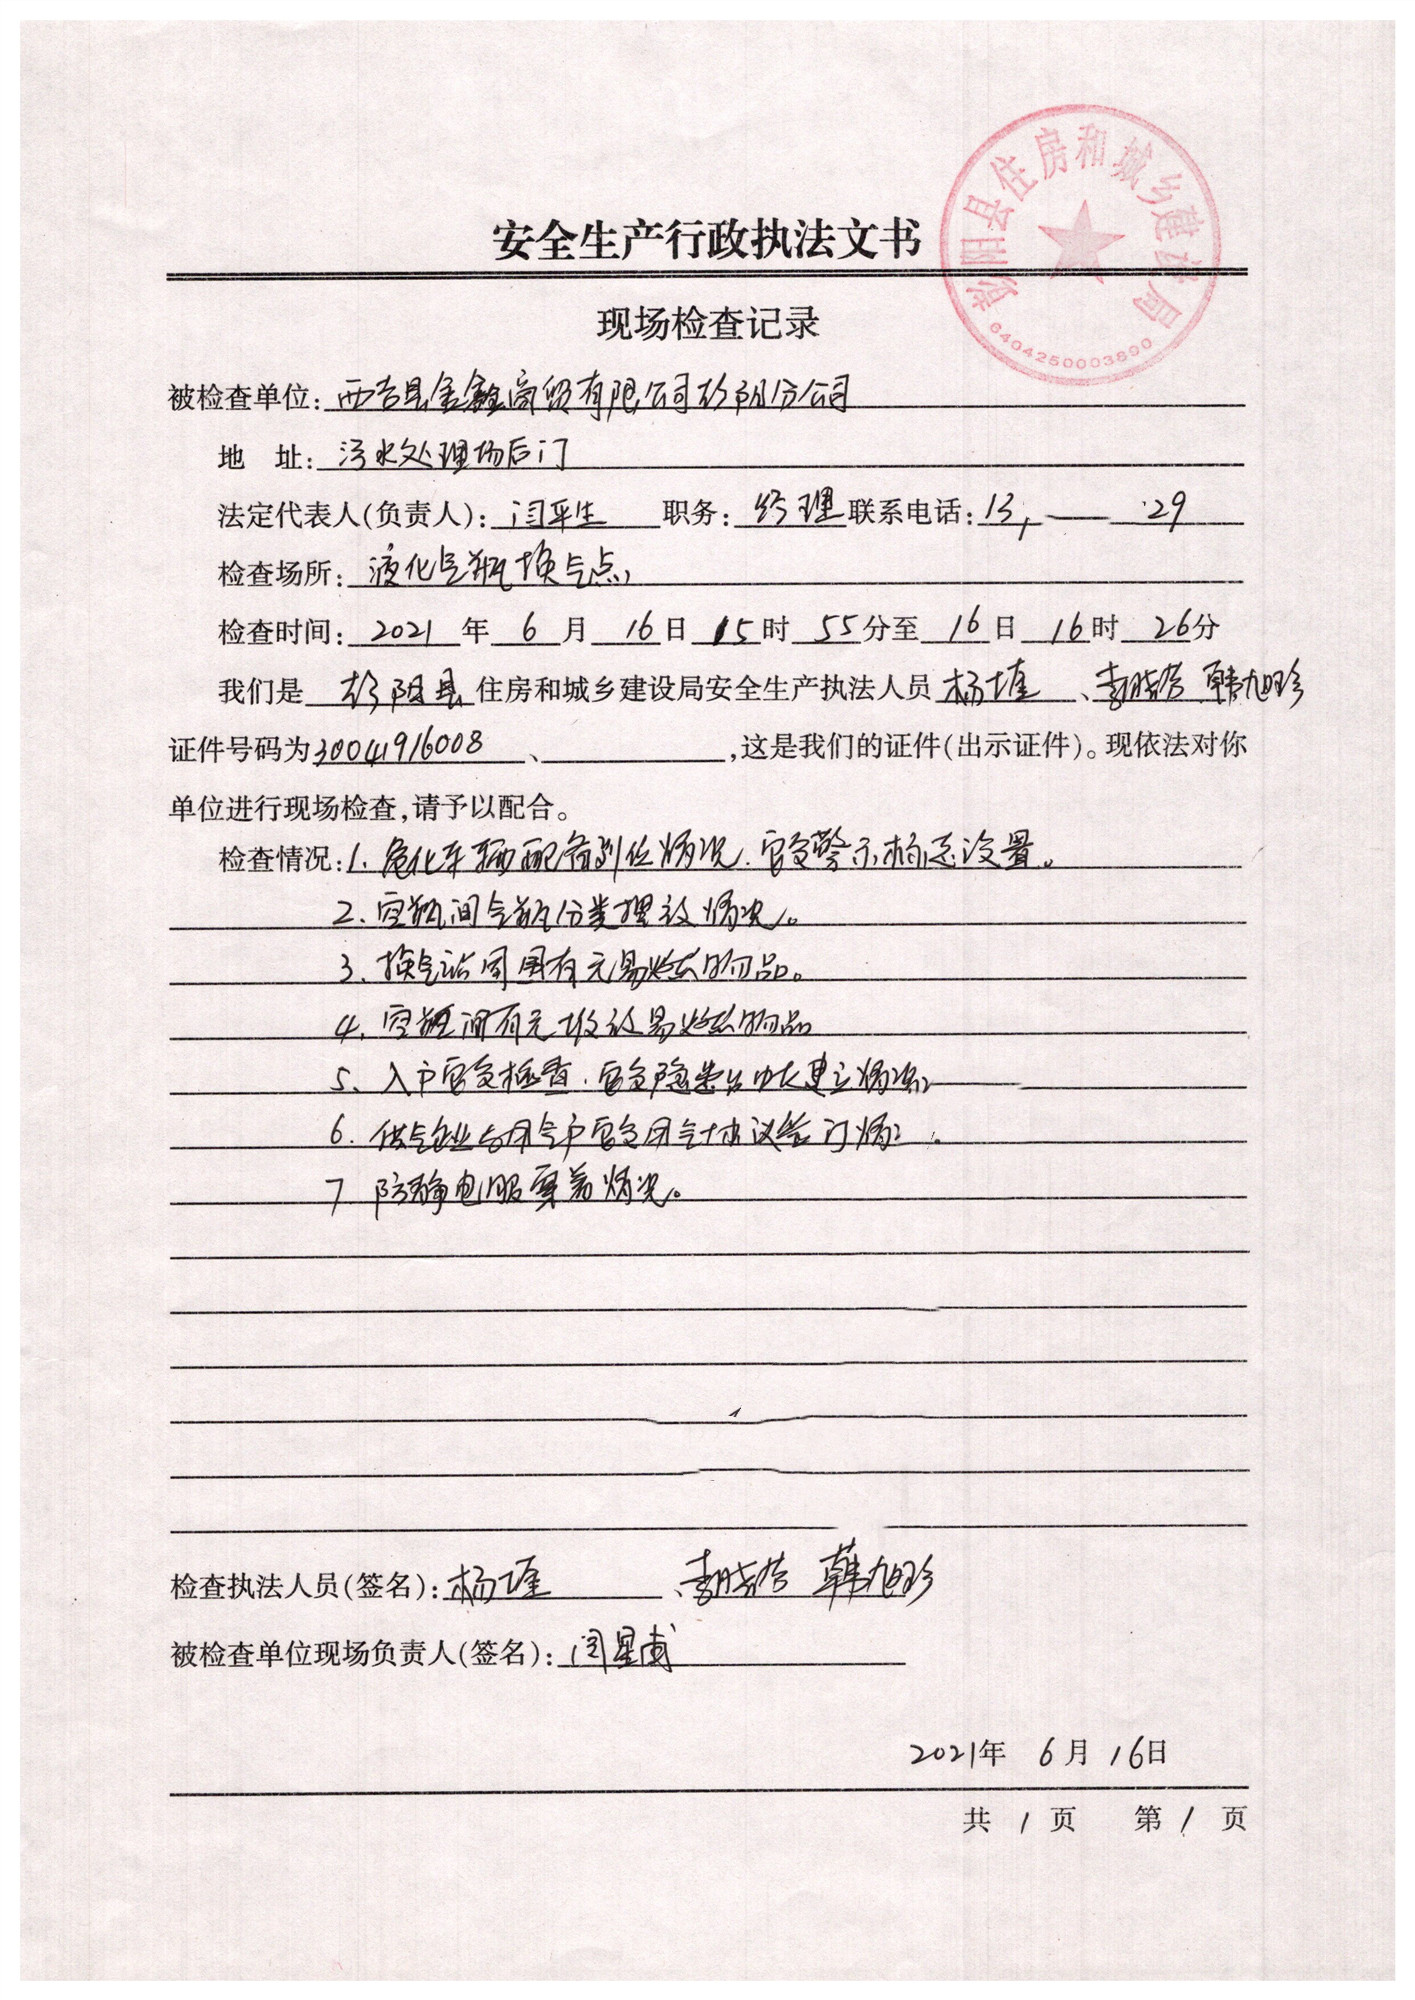 彭阳县住房和城乡建设局
6404250003890
安全生产行政执法文书
现场检查记录
被检查单位:西吉县金鑫商贸有限公司彭阳分公司
地 址:污水处理场后门
法定代表人(负责人):闫平生 职务:经理 联系电话:13 29
检查场所:液化气瓶换气点
检查时间:2021年6月16日15时55分至16日16时26分
我们是 彭阳县 住房和城乡建设局安全生产执法人员 杨 、李晓 韩旭珍
证件号码为30041916008、 ,这是我们的证件(出示证件)。现依法对你
单位进行现场检查,请予以配合。
检查情况:1、危化车辆配备到位情况、安全警示标志设置。
2、空瓶间气瓶分类摆放情况。
3、换气站周围有无易燃物品。
4、空瓶间有无堆放易燃物品
5、入户安全检查、安全隐患台账建立情况
6、供气企业与用气户安全用气协议签订情 。
7 防静电服穿着情况。
检查执法人员(签名):杨 、李晓 韩旭珍
被检查单位现场负责人(签名):闫星
2021年 6月 16日
共 1 页 第 1 页